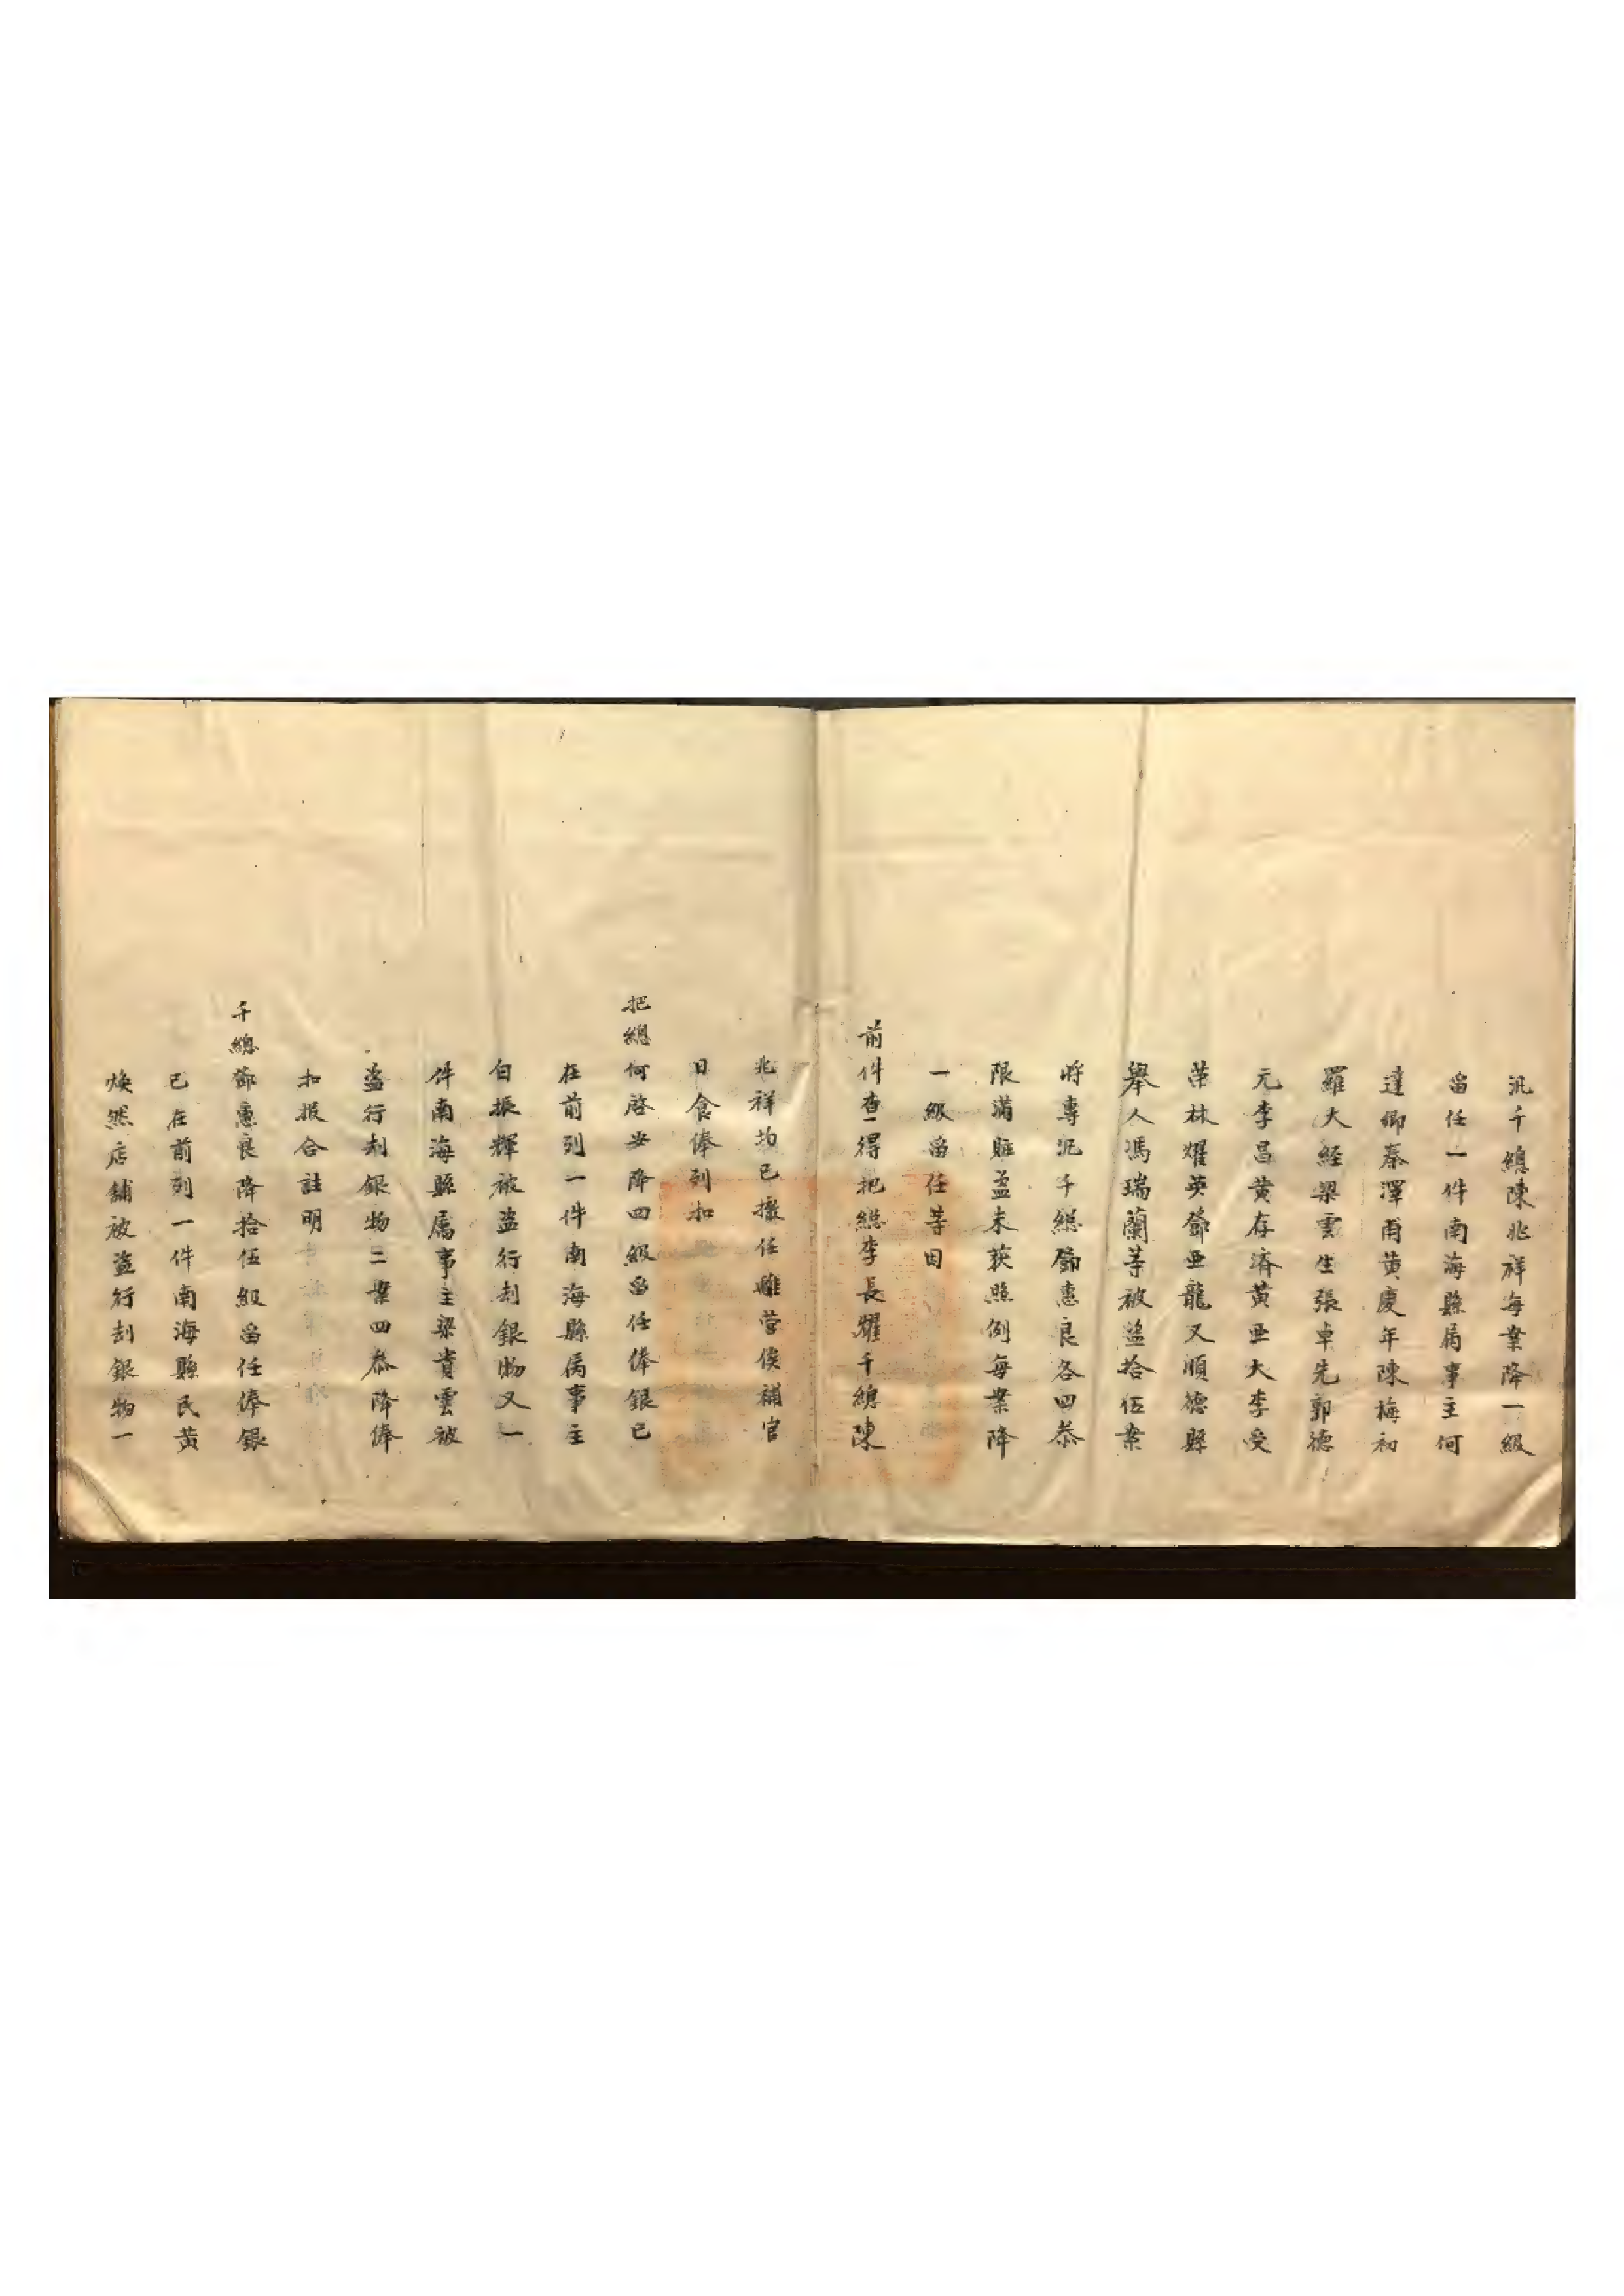 汛千總陳兆祥每案降一級
留任一件南海縣屬事主何
達卿秦澤甫黄慶年陳梅初
羅大經梁雲生張卓先郭德
元李昌黄存濟黄亜大李受
荣林燿英鄧亜龍又順德縣
舉人馮瑞蘭等被盜拾伍案
將專汛千総鄧惠良各四叅
限滿賍盗未获照例每案降
一級留任等因
前件查得把総李長耀千總陳
兆祥均已撤任離營俟補官
日食俸列扣
把總何啓安降四級留任俸銀已
在前列一件南海縣属事主
白振輝被盗行刦銀物又一
件南海縣属事主梁貴雲被
盗行刦銀物二案四叅降俸
扣报合註明
千總鄧惠良降拾伍級留任俸銀
已在前列一件南海縣民黄
煥然店鋪被盜行刦銀物一